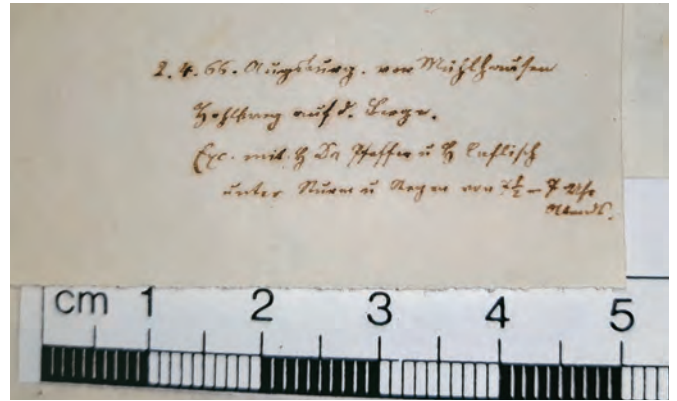 2. 4. 66. Augsburg. von Mühlhausen
Hohlweg auf d. Berge.
Exc. mit H Dr Pfeffer u H Caflisch
unter Sturm u Regen von ½ – 7 Uhr
Abends.
cm 1 2 3 4 5